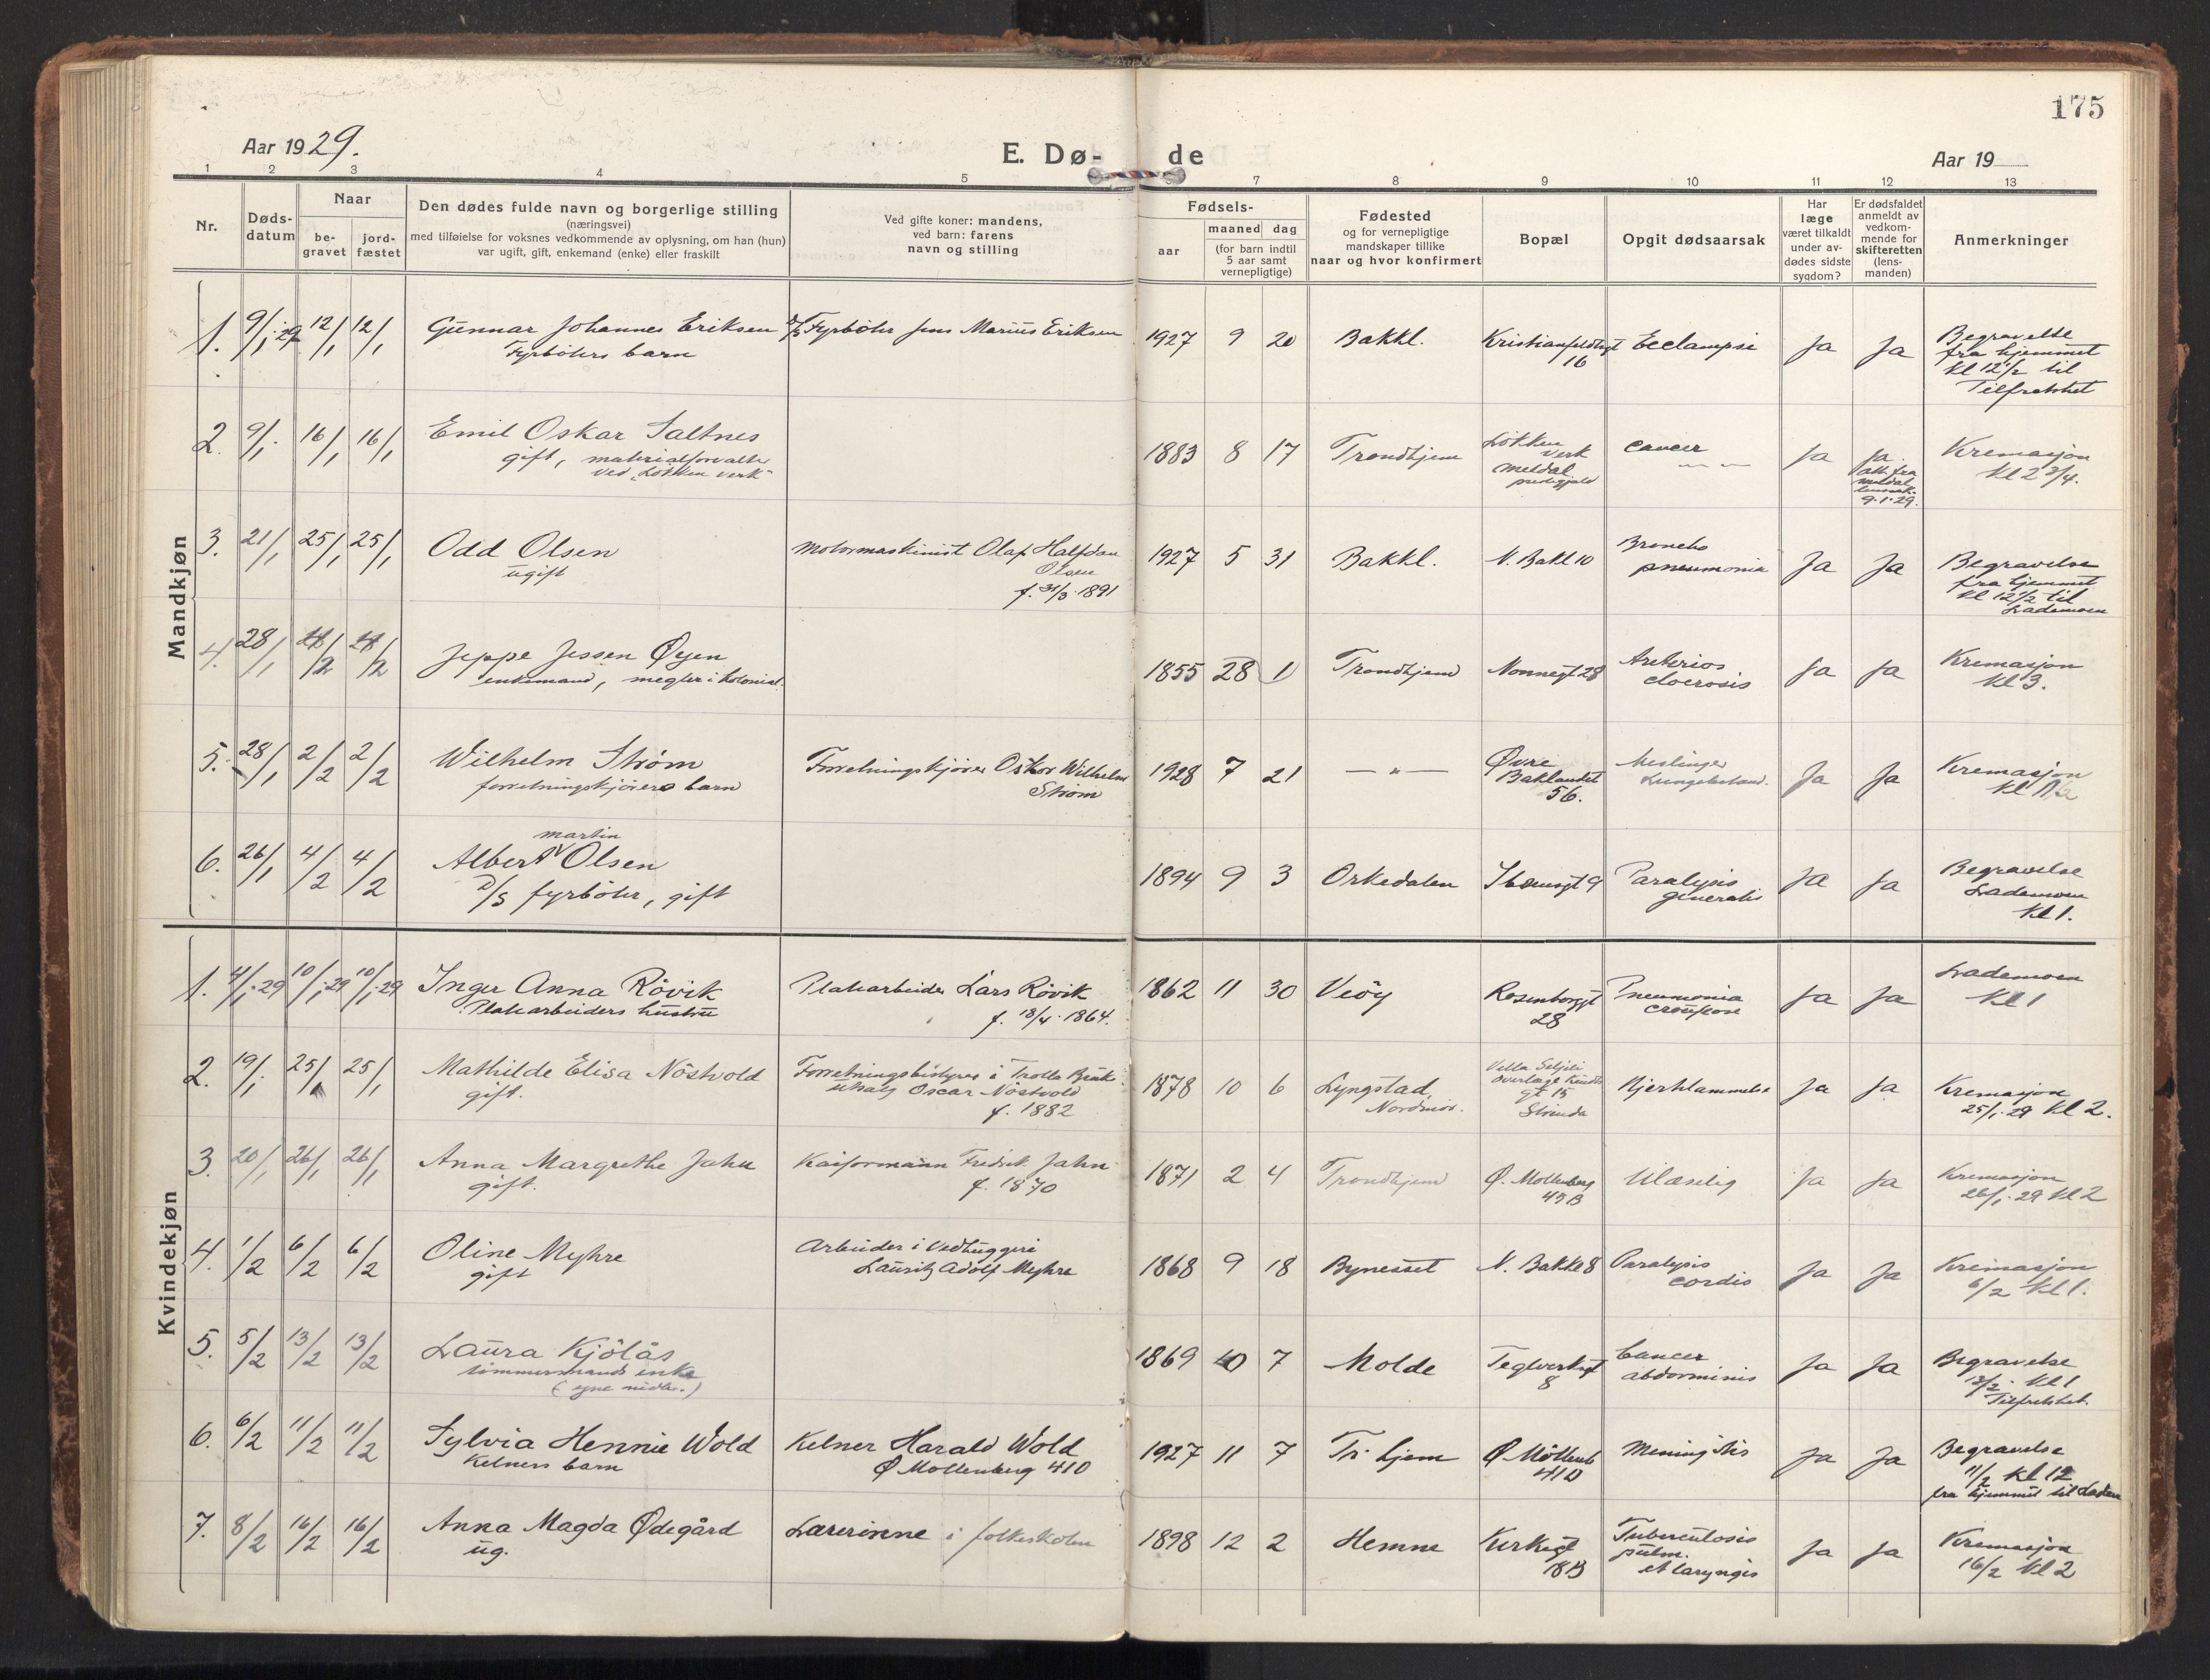 175
Aar 1929.
E. Dø-
de
Aar 19
1 2 3 4 5 7 8 9 10 11 12 13
Nr.
Døds-
datum
Naar
be-
gravet
jord-
fæstet
Den dødes fulde navn og borgerlige stilling
(næringsvei)
med tilføielse for voksnes vedkommende av oplysning, om han (hun)
var ugift, gift, enkemand (enke) eller fraskilt
Ved gifte koner: mandens,
ved barn: farens
navn og stilling
Fødsels-
aar
maaned dag
(for barn indtil
5 aar samt
vernepligtige)
Fødested
og for vernepligtige
mandskaper tillike
naar og hvor konfirmert
Bopæl
Opgit dødsaarsak
Har
læge
været tilkaldt
under av-
dødes sidste
sygdom?
Er dødsfaldet
anmeldt av
vedkom-
mende for
skifteretten
(lens-
manden)
Anmerkninger
Mandkjøn
1. 9/1 29 12/1 12/1 Gunnar Johannes Eriksen D/S Fyrböter Jens Marius Eriksen 1927 9 20 Bakkl. Eclampsi Ja Ja Begravelse
Fyrböters barn 16 fra hjemmet
kl 12 1/2 til
Tilfredshet
2. 9/1 16/1 16/1 Emil Oskar Saltnes 1883 8 17 Trondhjem Løkken Cancer Ja Ja Kremasjon
gift, materialforvalter verk kl 2 3/4.
ved "Løkken verk" Meldal att. fra
prestegjeld meldal
lensm.
9.1.29.
3. 21/1 25/1 25/1 Odd Olsen Motormaskinist Olaf Halfdan 1927 5 31 Bakkl. N. Bakl 10 Broncho Ja Ja Begravelse
ugift Olsen pneumonia fra hjemmet
f. 31/3 1891 kl 12 1/2 til
Lademoen
4. 28/1 Jeppe Jessen Øyen 1855 28 1 Trondhjem Nonnegt 28 Ja Ja Kremasjon
enkemand, megler i kolonial. kl 3.
5. 28/1 2/2 2/2 Wilhelm Strøm Forretningskjører Oskar Wilhelm 1928 7 21 — " — Øvre Meslinger Ja Ja Kremasjon
forretningskjørers barn Strøm Baklandet kl
56.
6. 26/1 4/2 4/2 Albert Martin Olsen 1894 9 3 Orkedalen Ibsensgt 9 Paralysis Ja Ja Begravelse
D/S fyrböter, gift generalis Lademoen
kl 1.
Kvindekjøn
1. 4/1 29 10/1 29 10/1 29 Inger Anna Rövik Platearbeider Lars Rövik 1862 11 30 Veöy Rosenborggt Pneumonia Ja Ja Lademoen
Platearbeiders hustru f. 18/4 1864. 28 crouposa kl 1
2. 19/1 25/1 25/1 Mathilde Elisa Nöstvold Forretningsbestyrer i Trolla Bruks 1878 10 6 Lyngstad, Hjerklammelse Ja Ja Kremasjon
gift. utsalg Oscar Nöstvold Nordmör. gt 15 25/1 29 kl 2.
f. 1882 Strinda
3. 20/1 26/1 26/1 Anna Margrethe Jahn Kaiformann Fredrik Jahn 1871 2 4 Trondhjem Ø. Mollenberg Ulæselig Ja Ja Kremasjon
gift. f. 1870 45 B 26/1 29 kl 2
4. 1/2 6/2 6/2 Oline Myhre Arbeider i Vedhuggeri 1868 9 18 Bynesset N. Bakke 8 Paralysis Ja Ja Kremasjon
gift Lauritz Adolf Myhre cordis 6/2 kl 1.
5. 5/2 13/2 13/2 Laura Kjölås 1869 10 7 Molde Teglverksgt Cancer Ja Ja Begravelse
tömmermands enke 8 abdominis 13/2 kl 1
(egne midler.) Tilfredshet.
6. 6/2 11/2 11/2 Sylvia Hennie Wold Kelner Harald Wold 1927 11 7 Tr.hjem Ø Möllenb Meningitis Ja Ja Begravelse
Kelners barn Ø Mollenberg 41 D 41 D 11/2 kl 12
fra hjemmet til Ladem
7. 8/2 16/2 16/2 Anna Magda Ødegård Lærerinne i folkeskolen 1898 12 2 Hemne Kirkegt Tuberculosis Ja Ja Kremasjon
ug. 18 B pulm. 16/2 kl 2
et laryngis